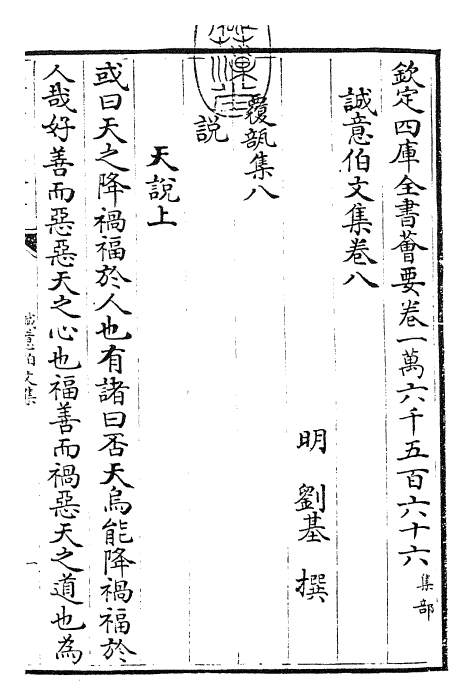 欽定四庫全書薈要卷一萬六千五百六十六 集部
誠意伯文集卷八
明 劉基 撰
覆瓿集八
説
天說上
或曰天之降禍福於人也有諸曰否天烏能降禍福於
人哉好善而惡惡天之心也福善而禍惡天之道也為
誠意伯文集
一